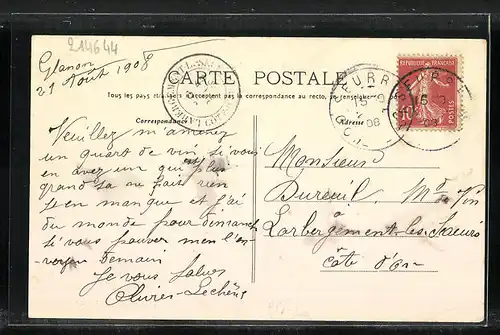 214644
Glanon
21 Août 1908
CARTE POSTALE
Tous les pays étrangers n'acceptent pas la correspondance au recto, se renseigner
Correspondance
Adresse
SEURRE
08
SEURRE
RÉPUBLIQUE FRANÇAISE
10
POSTES
Veuillez m'amener
un quart de vin si vous
en avez un qui plus
grand sa ne fait rien
je en manque et j'ai
du monde pour dimanche
si vous pouver men l'en
voyer Demain
Je vous salue
Olivier-Lechên
Monsieur
Dureuil, Md de Vin
à
Larbergement-les-Seurre
Côte d'Or